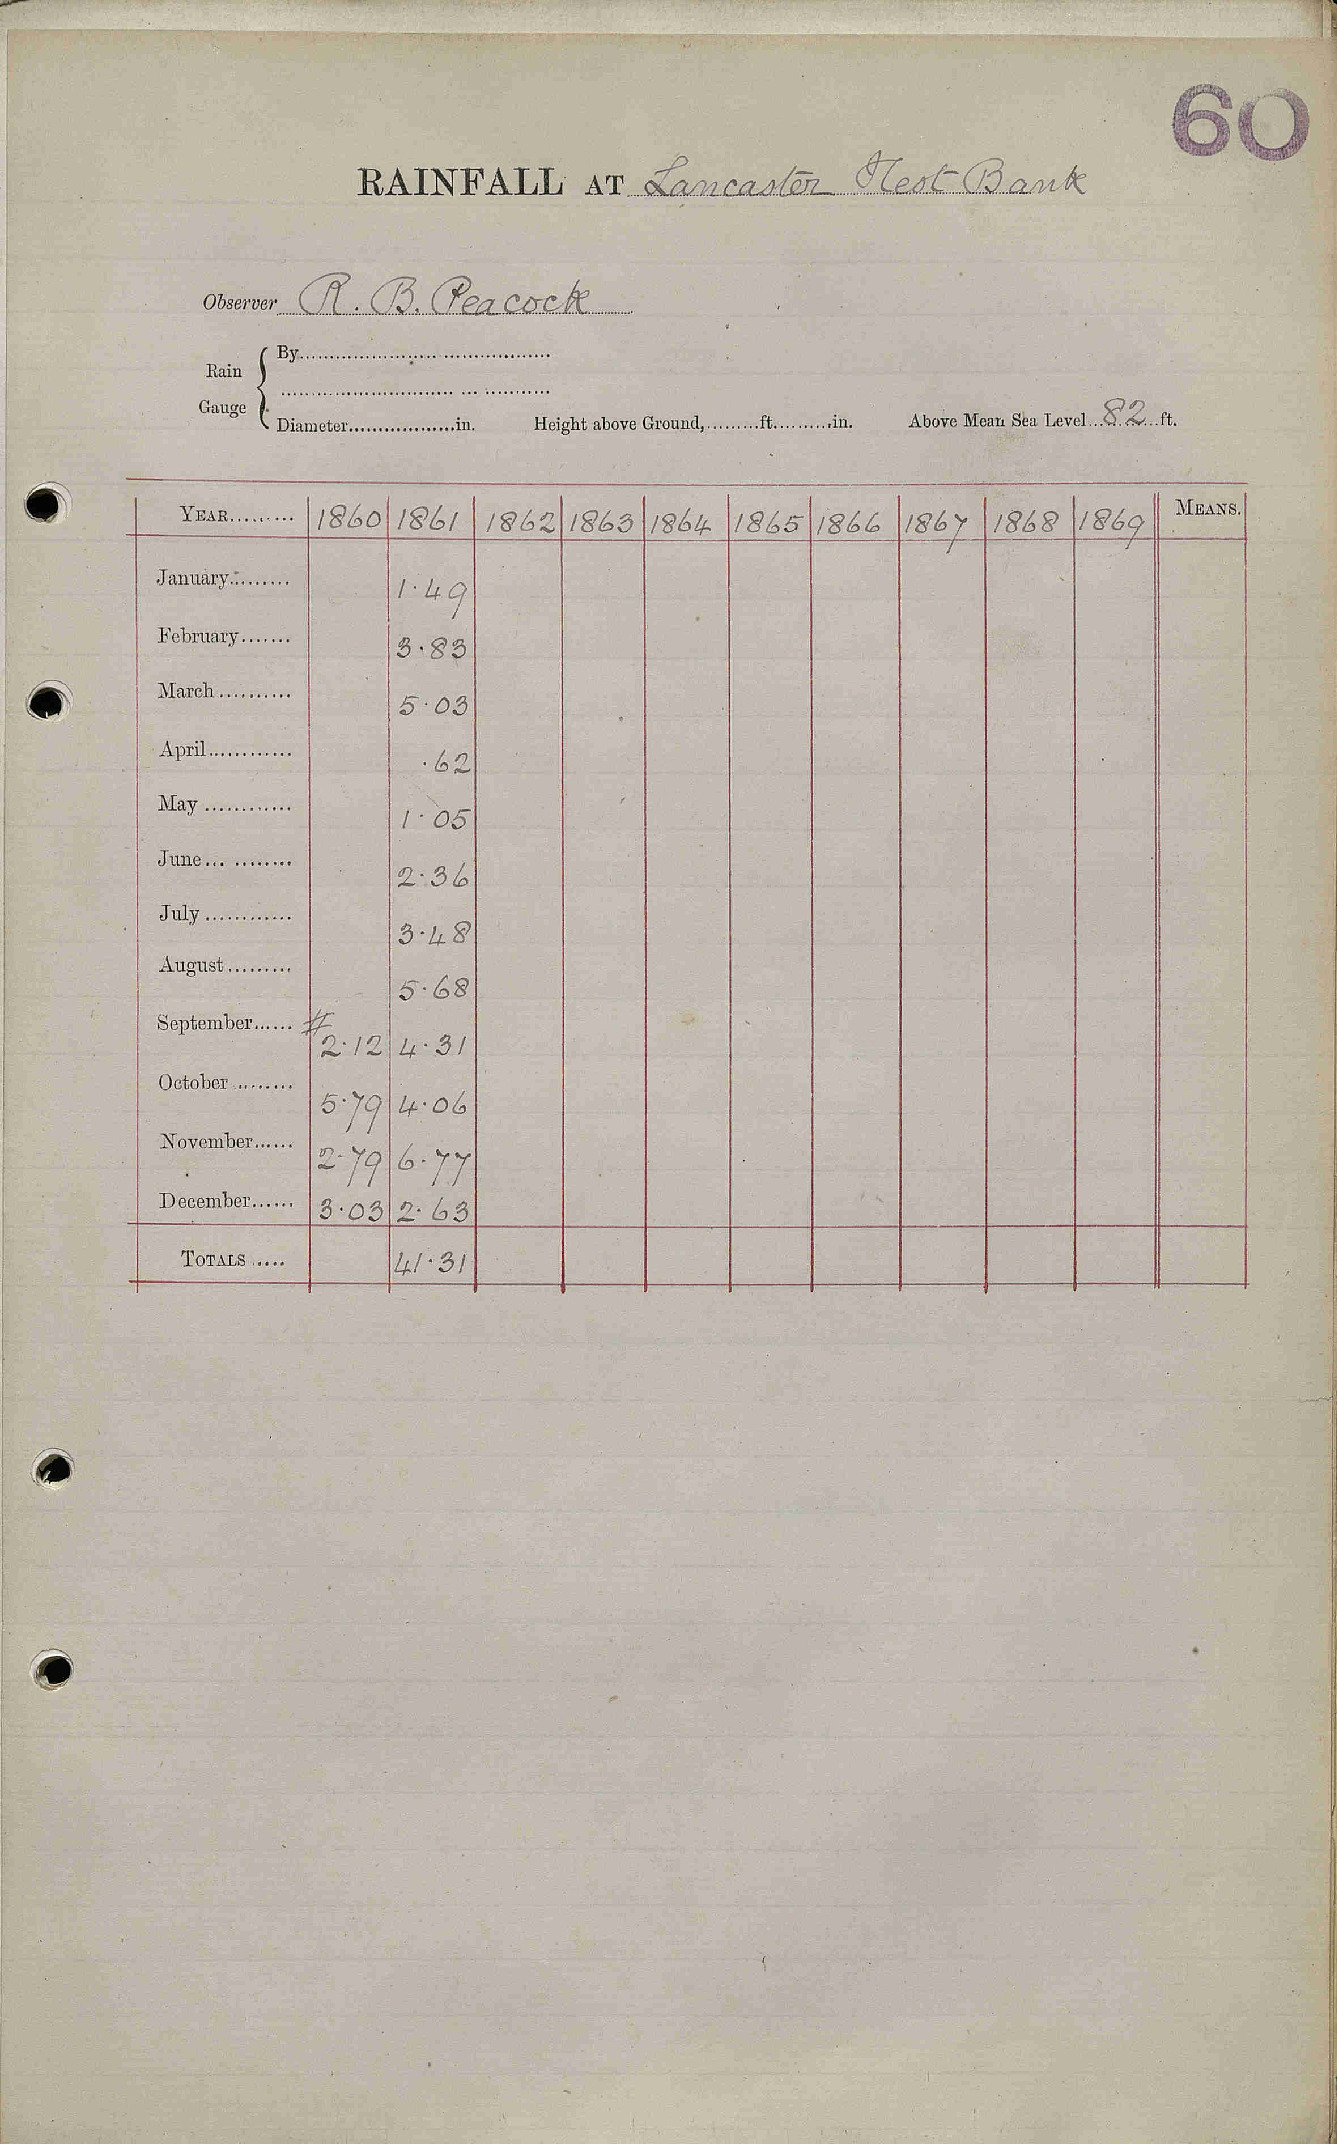 60
RAINFALL AT Lancaster Hest Bank
Observer R. B. Peacock
Rain Gauge { By
Diameter in. Height above Ground, ft. in. Above Mean Sea Level 82 ft.
YEAR 1860 1861 1862 1863 1864 1865 1866 1867 1868 1869 MEANS.
January 1.49
February 3.83
March 5.03
April .62
May 1.05
June 2.36
July 3.48
August 5.68
September # 2.12 4.31
October 5.79 4.06
November 2.79 6.77
December 3.03 2.63
TOTALS 41.31